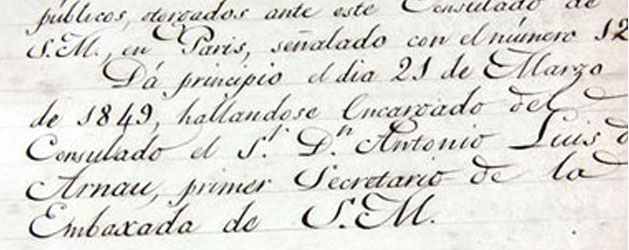 públicos, otorgados ante este Consulado de
S.M., en Paris, señalado con el número 12
Dá principio el dia 21 de Marzo
de 1849, hallandose Encargado del
Consulado el Sr. Dn. Antonio Luis d
Arnau, primer Secretario de la
Embaxada de S.M.